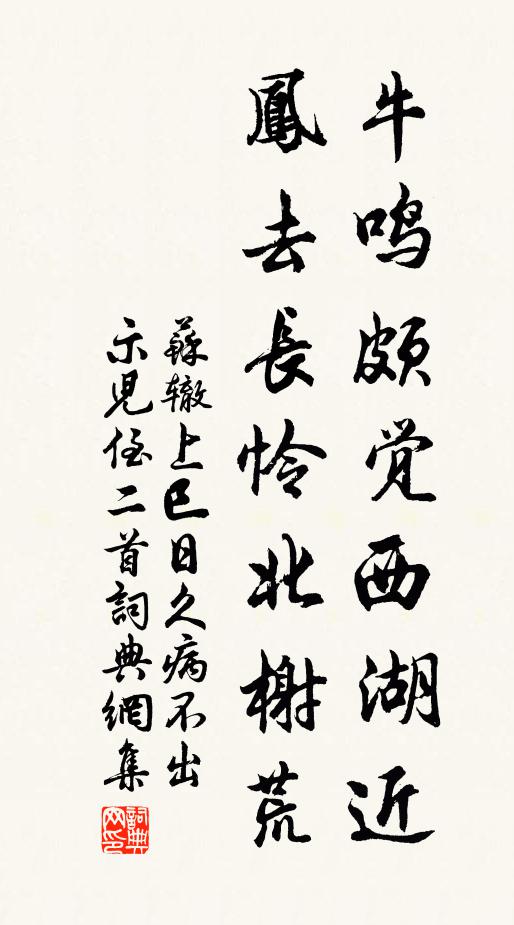 牛鸣颇觉西湖近
鳳去長怜北榭荒
蘇辙上巳日久病不出
示児侄二首詞典網集
詞典网印